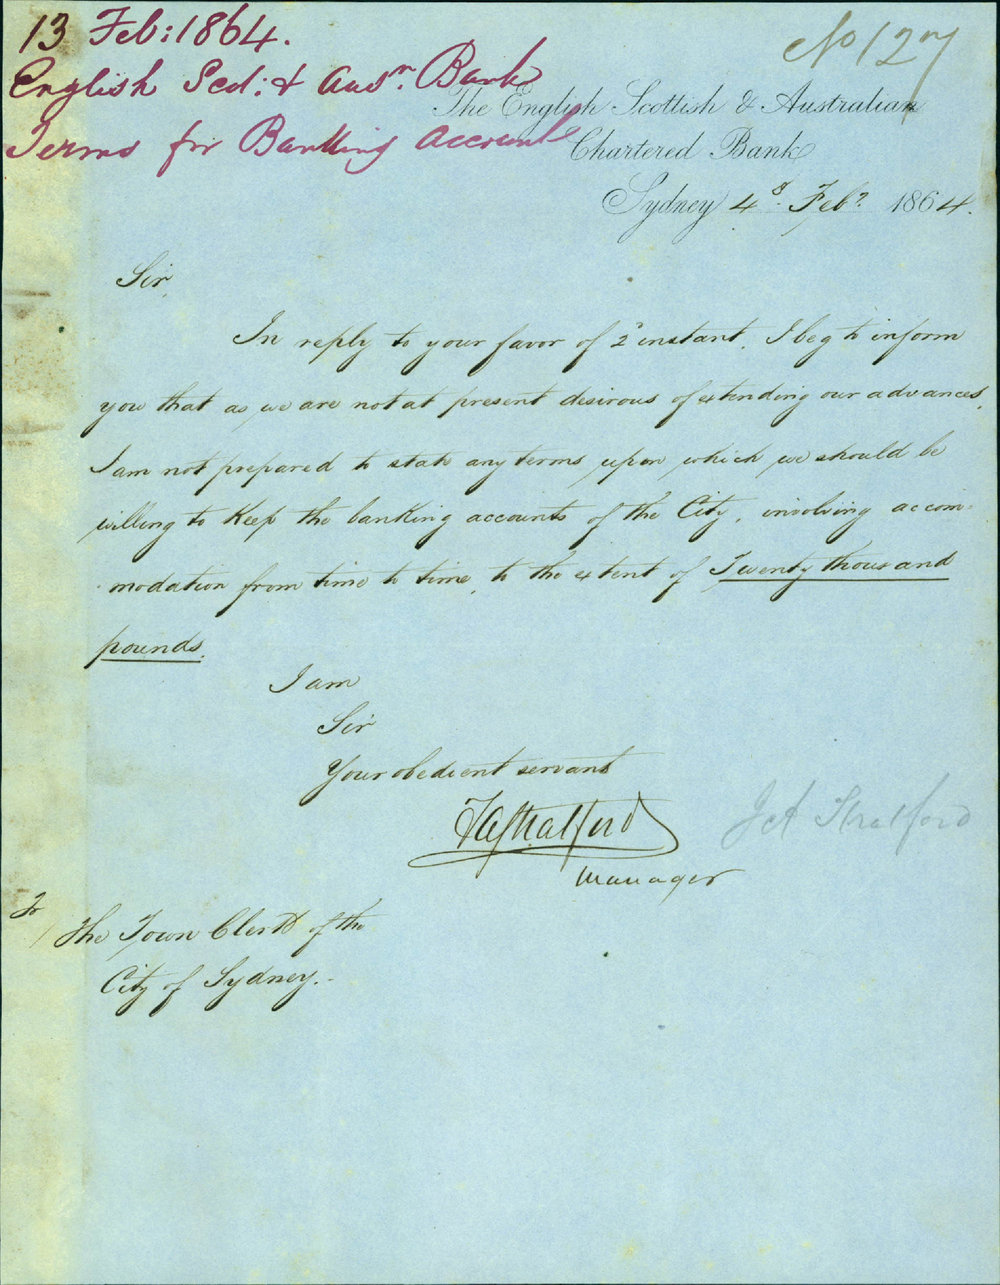 13 Feb: 1864.
English Scd: & Ausn. Bank
Terms for Banking Account
No 127
The English Scottish & Australian
Chartered Bank
Sydney 4 Feby 1864.
Sir,
In reply to your favor of 2d instant, I beg to inform
you that as we are not at present desirous of extending our advances,
I am not prepared to state any terms upon which we should be
willing to keep the banking accounts of the City, involving accom-
modation from time to time, to the extent of Twenty thousand
pounds.
I am
Sir
Your obedient servant
Stratford
Manager
J A Stratford
To
The Town Clerk of the
City of Sydney.